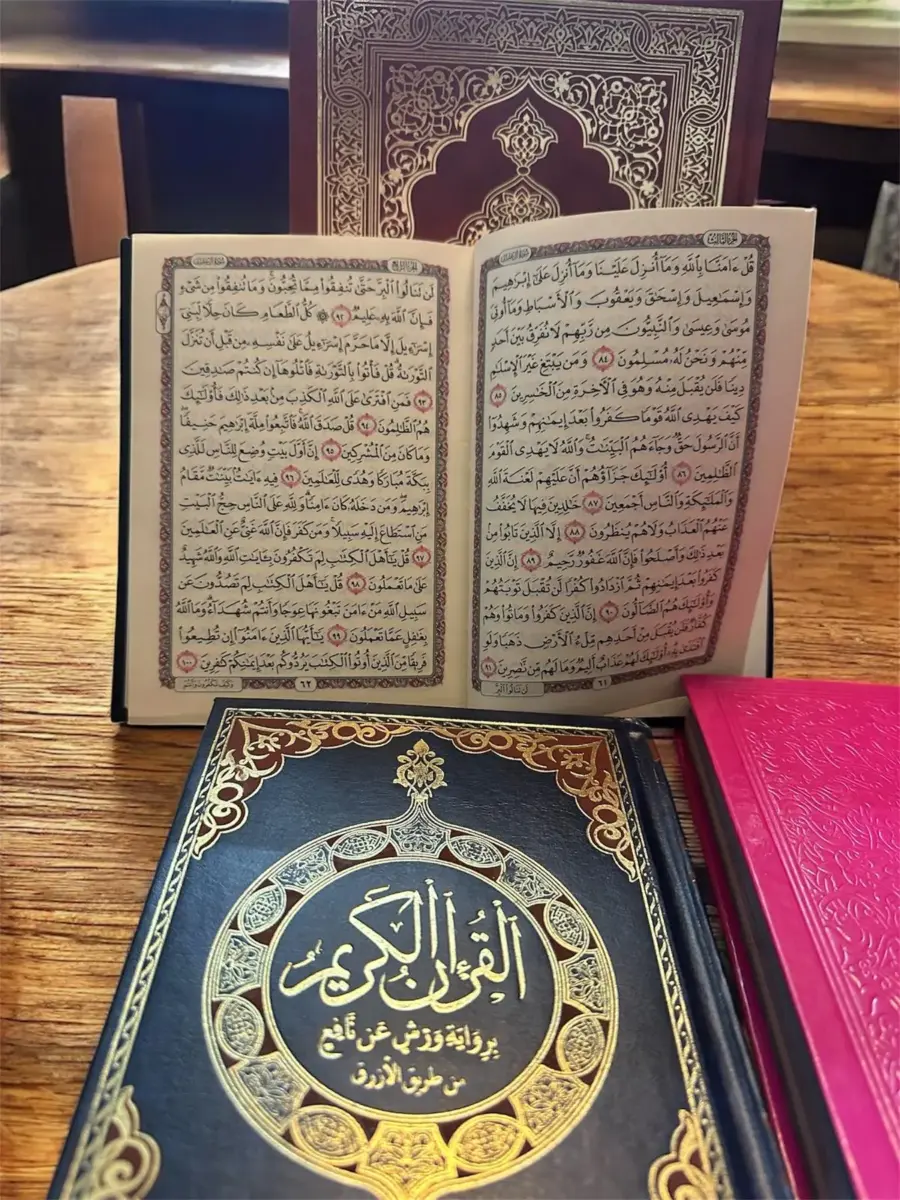 الجزء الثالث
سورة آل عمران
قُلْ ءَامَنَّا بِاللَّهِ وَمَا أُنزِلَ عَلَيْنَا وَمَا أُنزِلَ عَلَىٰ إِبْرَاهِيمَ
وَإِسْمَاعِيلَ وَإِسْحَاقَ وَيَعْقُوبَ وَالْأَسْبَاطِ وَمَا أُوتِيَ
مُوسَىٰ وَعِيسَىٰ وَالنَّبِيُّونَ مِن رَّبِّهِمْ لَا نُفَرِّقُ بَيْنَ أَحَدٍ
مِّنْهُمْ وَنَحْنُ لَهُ مُسْلِمُونَ ٨٤ وَمَن يَبْتَغِ غَيْرَ الْإِسْلَامِ
دِينًا فَلَن يُقْبَلَ مِنْهُ وَهُوَ فِي الْآخِرَةِ مِنَ الْخَاسِرِينَ ٨٥
كَيْفَ يَهْدِي اللَّهُ قَوْمًا كَفَرُوا بَعْدَ إِيمَانِهِمْ وَشَهِدُوا
أَنَّ الرَّسُولَ حَقٌّ وَجَاءَهُمُ الْبَيِّنَاتُ وَاللَّهُ لَا يَهْدِي الْقَوْمَ
الظَّالِمِينَ ٨٦ أُولَٰئِكَ جَزَاؤُهُمْ أَنَّ عَلَيْهِمْ لَعْنَةَ اللَّهِ
وَالْمَلَائِكَةِ وَالنَّاسِ أَجْمَعِينَ ٨٧ خَالِدِينَ فِيهَا لَا يُخَفَّفُ
عَنْهُمُ الْعَذَابُ وَلَا هُمْ يُنظَرُونَ ٨٨ إِلَّا الَّذِينَ تَابُوا مِن
بَعْدِ ذَٰلِكَ وَأَصْلَحُوا فَإِنَّ اللَّهَ غَفُورٌ رَّحِيمٌ ٨٩ إِنَّ الَّذِينَ
كَفَرُوا بَعْدَ إِيمَانِهِمْ ثُمَّ ازْدَادُوا كُفْرًا لَّن تُقْبَلَ تَوْبَتُهُمْ
وَأُولَٰئِكَ هُمُ الضَّالُّونَ ٩٠ إِنَّ الَّذِينَ كَفَرُوا وَمَاتُوا وَهُمْ
كُفَّارٌ فَلَن يُقْبَلَ مِنْ أَحَدِهِم مِّلْءُ الْأَرْضِ ذَهَبًا وَلَوِ
افْتَدَىٰ بِهِ أُولَٰئِكَ لَهُمْ عَذَابٌ أَلِيمٌ وَمَا لَهُم مِّن نَّاصِرِينَ ٩١
٦١
لن تنالوا البر
الجزء الرابع
سورة آل عمران
لَن تَنَالُوا الْبِرَّ حَتَّىٰ تُنفِقُوا مِمَّا تُحِبُّونَ وَمَا تُنفِقُوا مِن شَيْءٍ
فَإِنَّ اللَّهَ بِهِ عَلِيمٌ ٩٢ ۞ كُلُّ الطَّعَامِ كَانَ حِلًّا لِّبَنِي
إِسْرَاءِيلَ إِلَّا مَا حَرَّمَ إِسْرَاءِيلُ عَلَىٰ نَفْسِهِ مِن قَبْلِ أَن تُنَزَّلَ
التَّوْرَاةُ قُلْ فَأْتُوا بِالتَّوْرَاةِ فَاتْلُوهَا إِن كُنتُمْ صَادِقِينَ
٩٣ فَمَنِ افْتَرَىٰ عَلَى اللَّهِ الْكَذِبَ مِن بَعْدِ ذَٰلِكَ فَأُولَٰئِكَ
هُمُ الظَّالِمُونَ ٩٤ قُلْ صَدَقَ اللَّهُ فَاتَّبِعُوا مِلَّةَ إِبْرَاهِيمَ حَنِيفًا
وَمَا كَانَ مِنَ الْمُشْرِكِينَ ٩٥ إِنَّ أَوَّلَ بَيْتٍ وُضِعَ لِلنَّاسِ لَلَّذِي
بِبَكَّةَ مُبَارَكًا وَهُدًى لِّلْعَالَمِينَ ٩٦ فِيهِ ءَايَاتٌ بَيِّنَاتٌ مَّقَامُ
إِبْرَاهِيمَ وَمَن دَخَلَهُ كَانَ ءَامِنًا وَلِلَّهِ عَلَى النَّاسِ حِجُّ الْبَيْتِ
مَنِ اسْتَطَاعَ إِلَيْهِ سَبِيلًا وَمَن كَفَرَ فَإِنَّ اللَّهَ غَنِيٌّ عَنِ الْعَالَمِينَ
٩٧ قُلْ يَا أَهْلَ الْكِتَابِ لِمَ تَكْفُرُونَ بِآيَاتِ اللَّهِ وَاللَّهُ شَهِيدٌ
عَلَىٰ مَا تَعْمَلُونَ ٩٨ قُلْ يَا أَهْلَ الْكِتَابِ لِمَ تَصُدُّونَ عَن
سَبِيلِ اللَّهِ مَنْ ءَامَنَ تَبْغُونَهَا عِوَجًا وَأَنتُمْ شُهَدَاءُ وَمَا اللَّهُ
بِغَافِلٍ عَمَّا تَعْمَلُونَ ٩٩ يَا أَيُّهَا الَّذِينَ ءَامَنُوا إِن تُطِيعُوا
فَرِيقًا مِّنَ الَّذِينَ أُوتُوا الْكِتَابَ يَرُدُّوكُم بَعْدَ إِيمَانِكُمْ كَافِرِينَ ١٠٠
٦٢
وكيف تكفرون وأنتم
الْقُرْءَانُ الْكَرِيمُ
بِرِوَايَةِ وَرْشٍ عَن نَّافِعٍ
من طريق الأزرق